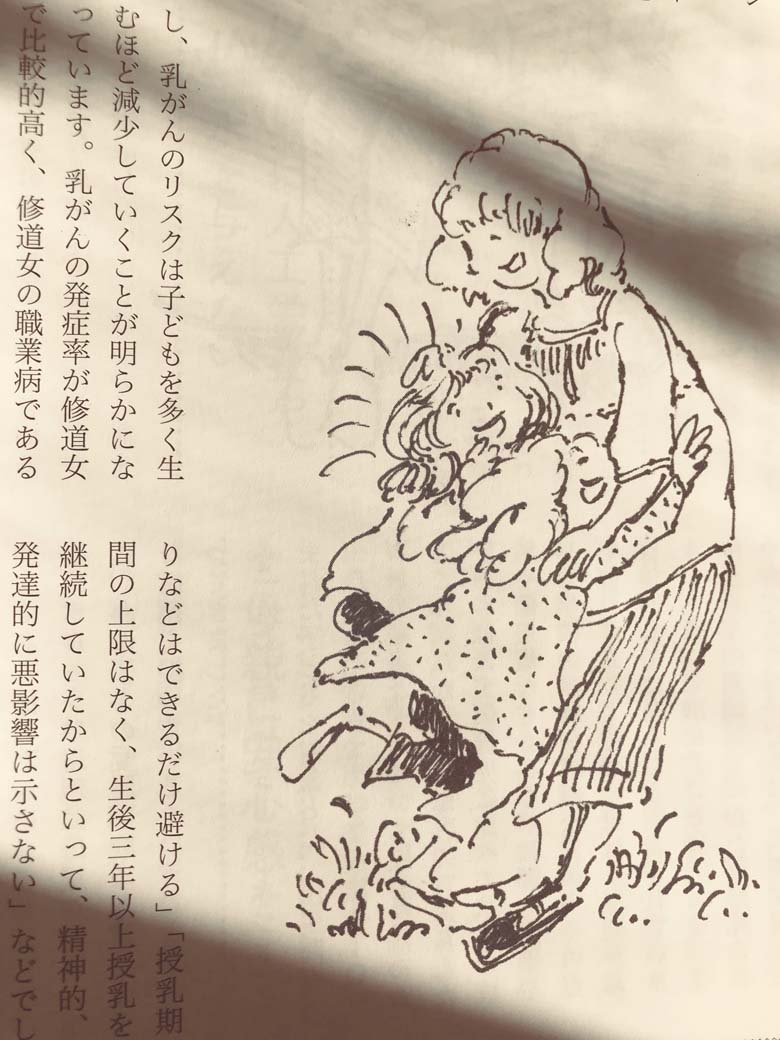 し、乳がんのリスクは子どもを多く生
むほど減少していくことが明らかにな
っています。乳がんの発症率が修道女
で比較的高く、修道女の職業病である
りなどはできるだけ避ける」「授乳期
間の上限はなく、生後三年以上授乳を
継続していたからといって、精神的、
発達的に悪影響は示さない」などでし